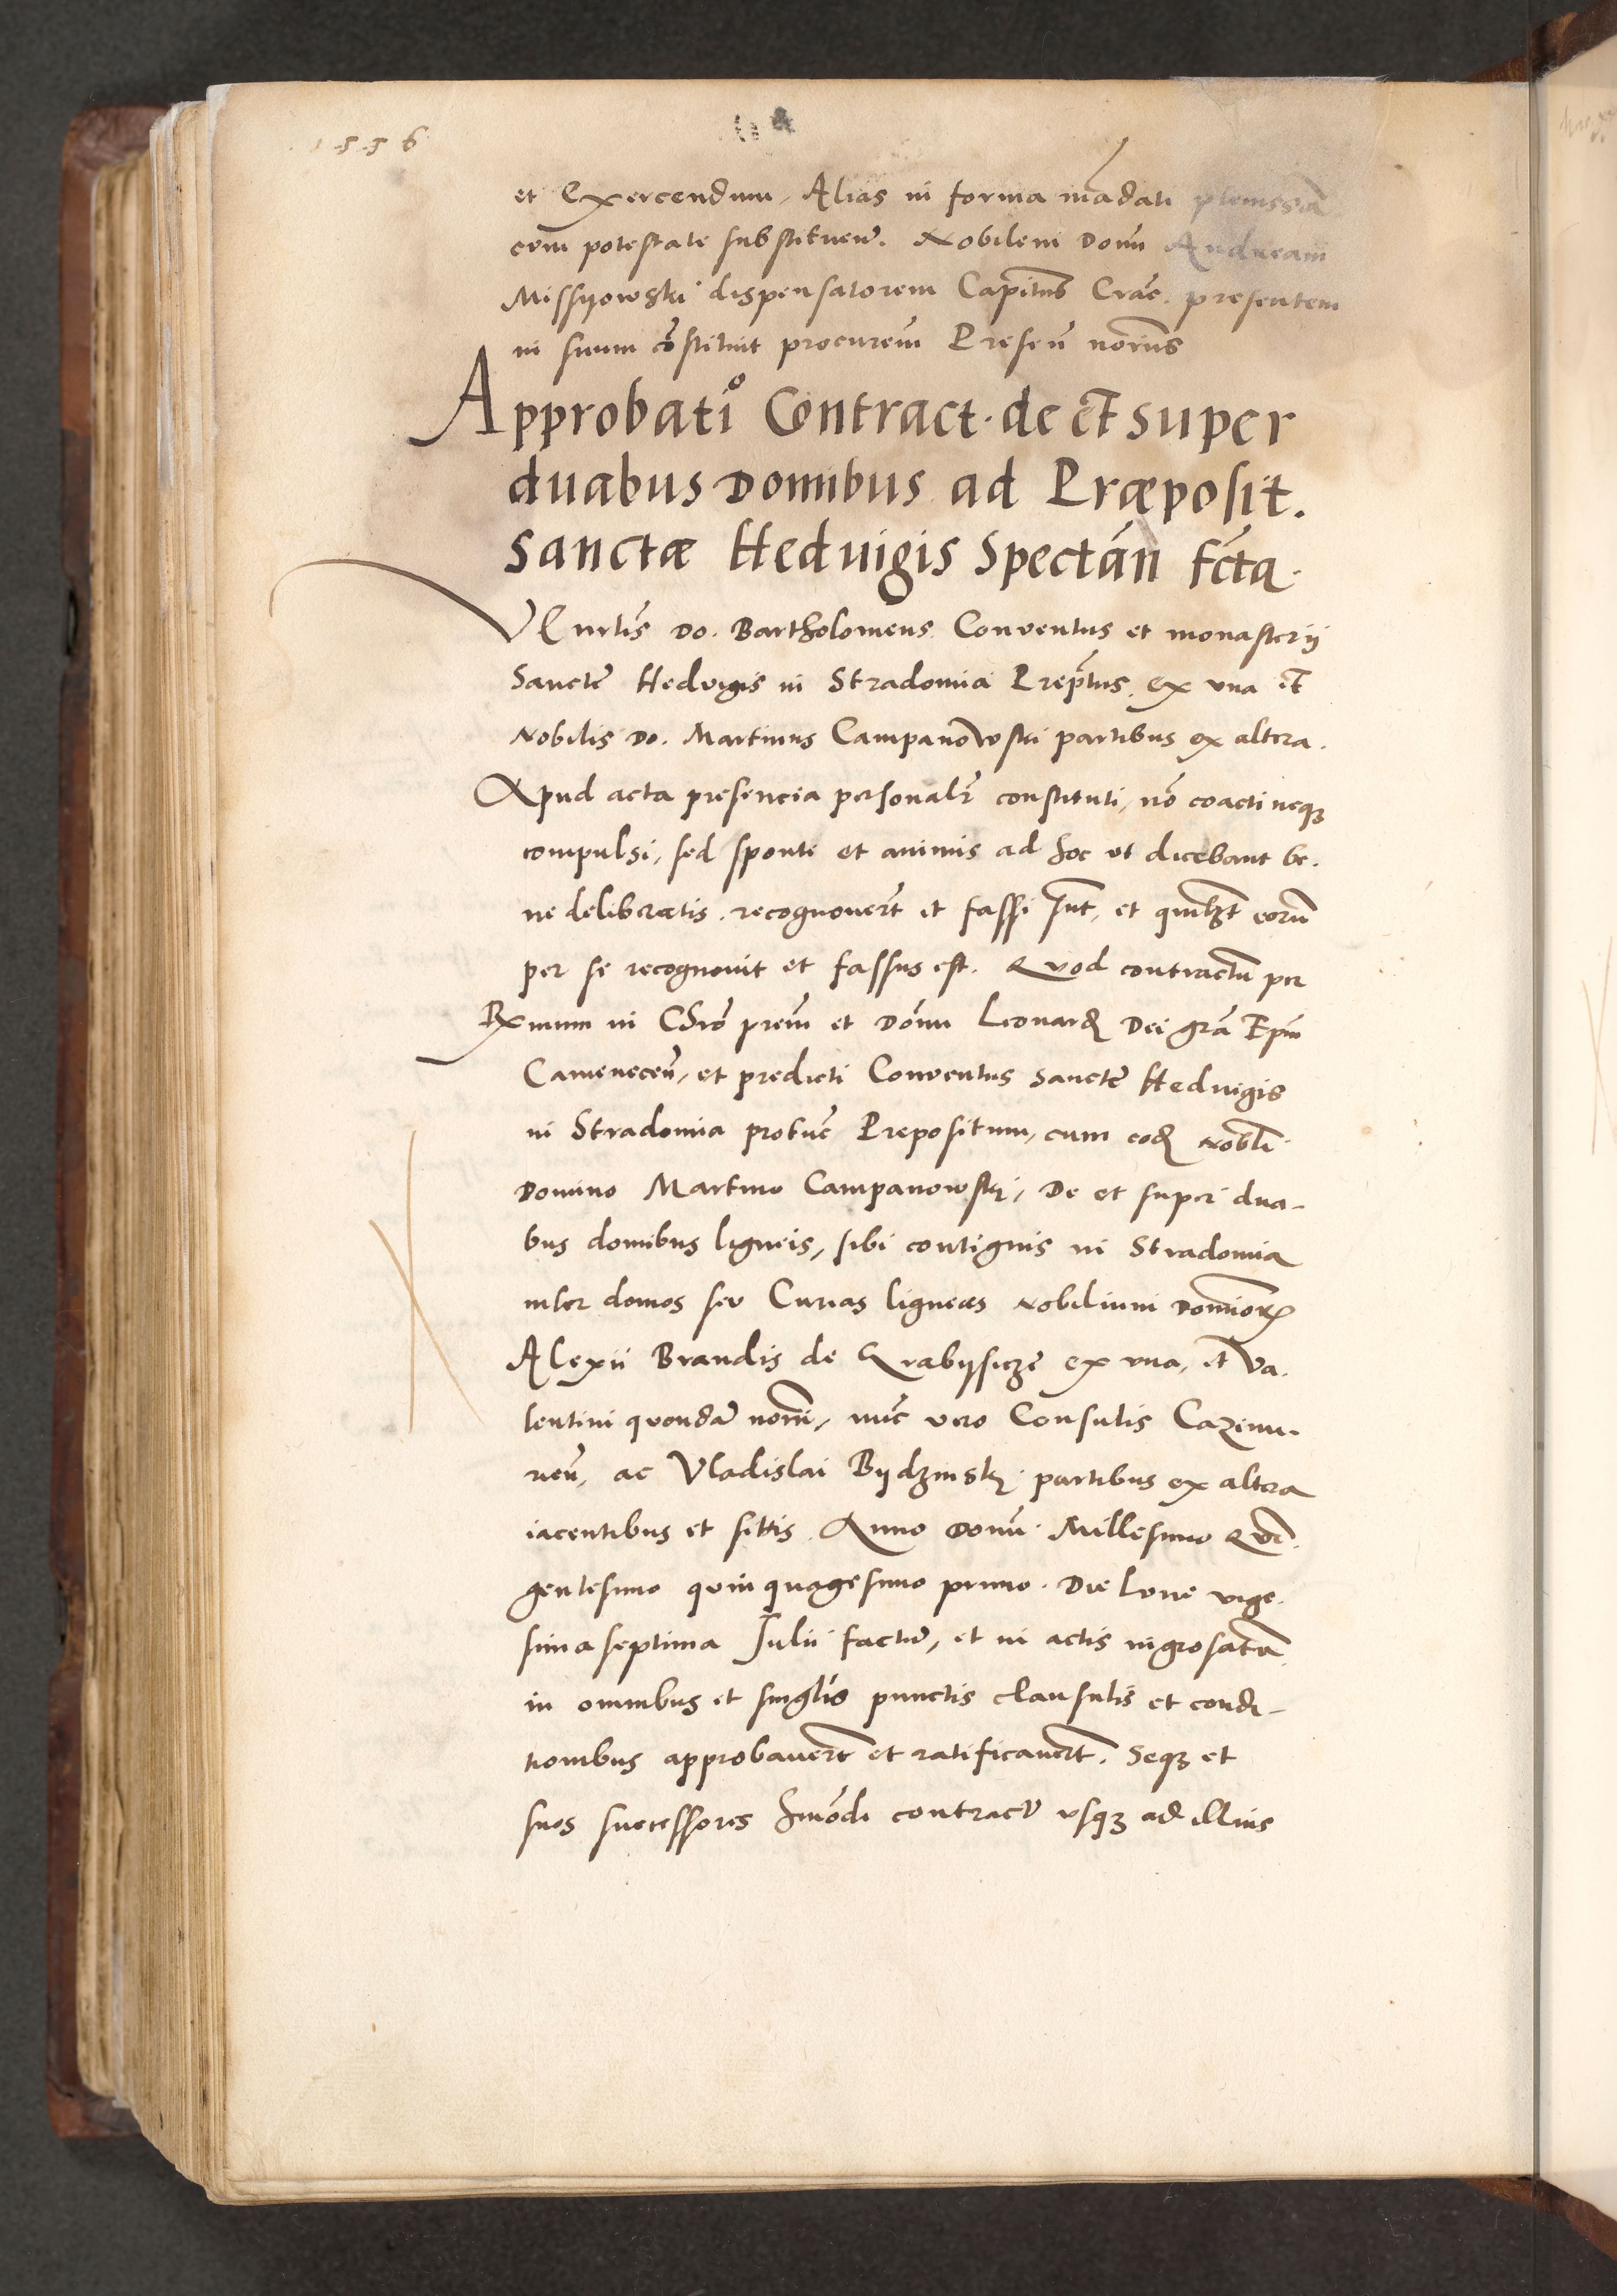 1556
et Exercendum, Alias in forma mãdati plenissiã
cem potestate substituen̄. Nobilem Domũ Andream
Missyowski dispensatorem Capituli Crac̃. presentem
in suum cõstituit procurem̃ Presen̄ nonius
Approbatio Contract. de et super
duabus Domibus ad Præposit.
Sanctæ Hedvigis Spectãn fcta.
Bartholomeus Conventus et monasterij
Sancte Hedvigis in Stradomia Prepr̃tus. ex una et
Nobilis Do. Martinus Campanowski partibus ex altera.
Apud acta presencia personalr̃ constituti, nõ coacti neqз
compulsi, sed sponte et animis ad hoc ut dicebant be.
ne deliberatis. recognouert̃ et fassi sunt, et quilibet eorũ
per se recognouit et fassus est. Quod contractũ per
Rxmum in Chrõ prem̃ et Dõnu Leonard Dei grã Epm̃
Camenecen̄, et predicti Conventus Sancte Hedvigis
in Stradomia protũc Prepositum, cum eod Nobli
Domino Martino Campanowski, De et super dua-
bus domibus ligneis, sibi contiguis in Stradomia
inter domos seu Curias ligneas Nobilium Domiorꝝ
Alexii Brandis de Grabysicze ex una, et Va.
lentini quondã nõrii, nũc vero Consulis Cazimi.
rien̄, ac Vladislai Bydzinski partibus ex altera
iacentibus et sittis. Anno Domĩ. Millesimo Quĩ.
gentesimo quinquagesimo primo. Die Lune vige.
sima septima Julii factũ, et in actis ingrosatũ
in omnibus et singlis punctis clausulis et condi-
tionibus approbauert̃ et ratificauert̃. Seqз et
suos successores hmõdi contractũ usqз ad illius